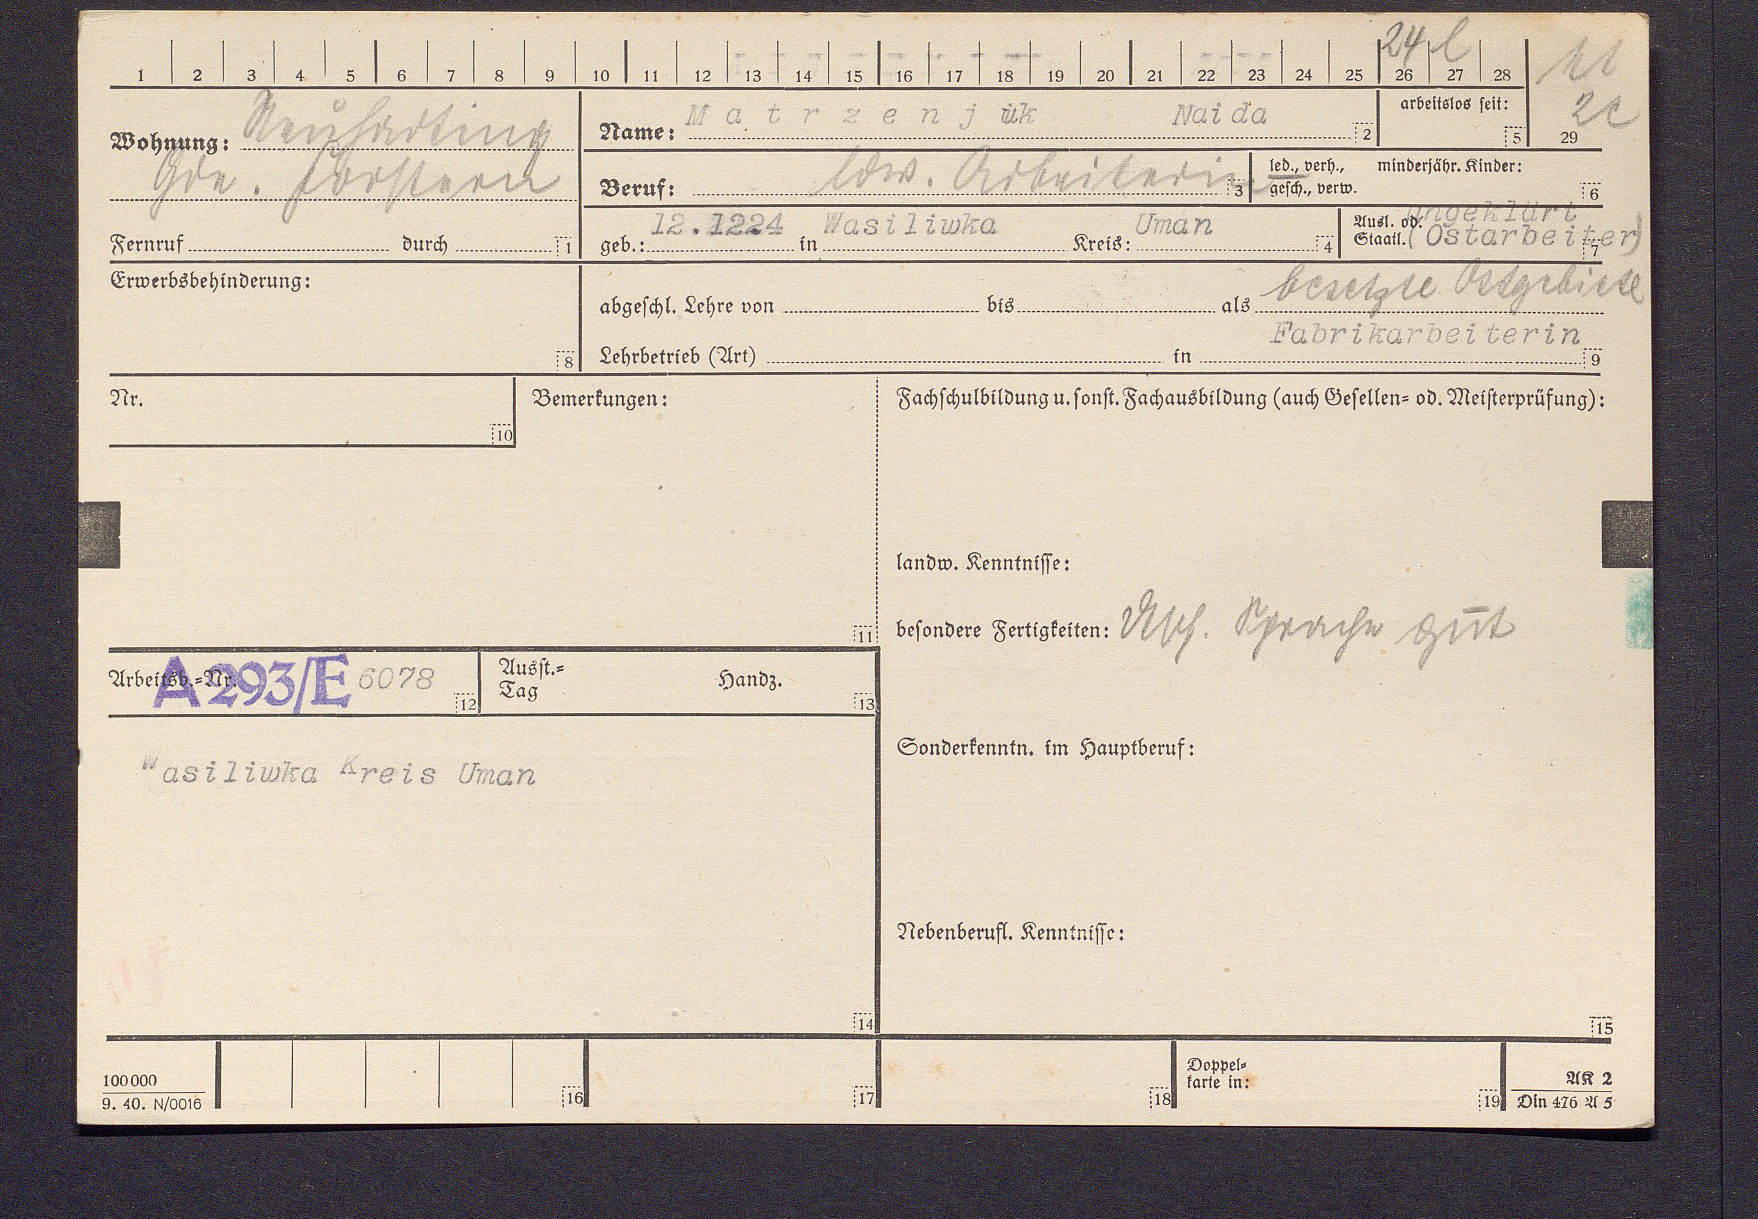 24 l
1 2 3 4 5 6 7 8 9 10 11 12 13 14 15 16 17 18 19 20 21 22 23 24 25 26 27 28
29
Wohnung: Neuharting
Gde. Forstern
Fernruf durch 1
Name: Matrzenjuk Naida 2
arbeitslos seit: 5
Beruf: ldw. Arbeiterin 3
led., verh., minderjähr. Kinder:
gesch., verw. 6
geb.: 12.1224 in Wasiliwka Kreis: Uman 4
Ausl. od. ungeklärt
Staatl. (Ostarbeiter) 7
besetzte Ostgebiete
Erwerbsbehinderung: 8
abgeschl. Lehre von bis als
Fabrikarbeiterin
Lehrbetrieb (Art) in 9
Nr. 10
Bemerkungen: 11
Fachschulbildung u. sonst. Fachausbildung (auch Gesellen- od. Meisterprüfung):
landw. Kenntnisse:
besondere Fertigkeiten: Dtsch. Sprache gut
Arbeitsb.-Nr. A 293/E 6078 12
Ausst.- Handz.
Tag 13
Wasiliwka Kreis Uman
14
Sonderkenntn. im Hauptberuf:
Nebenberufl. Kenntnisse:
15
100000
9. 40. N/0016
16 17 18
Doppel-
karte in: 19
AK 2
Din 476 A 5